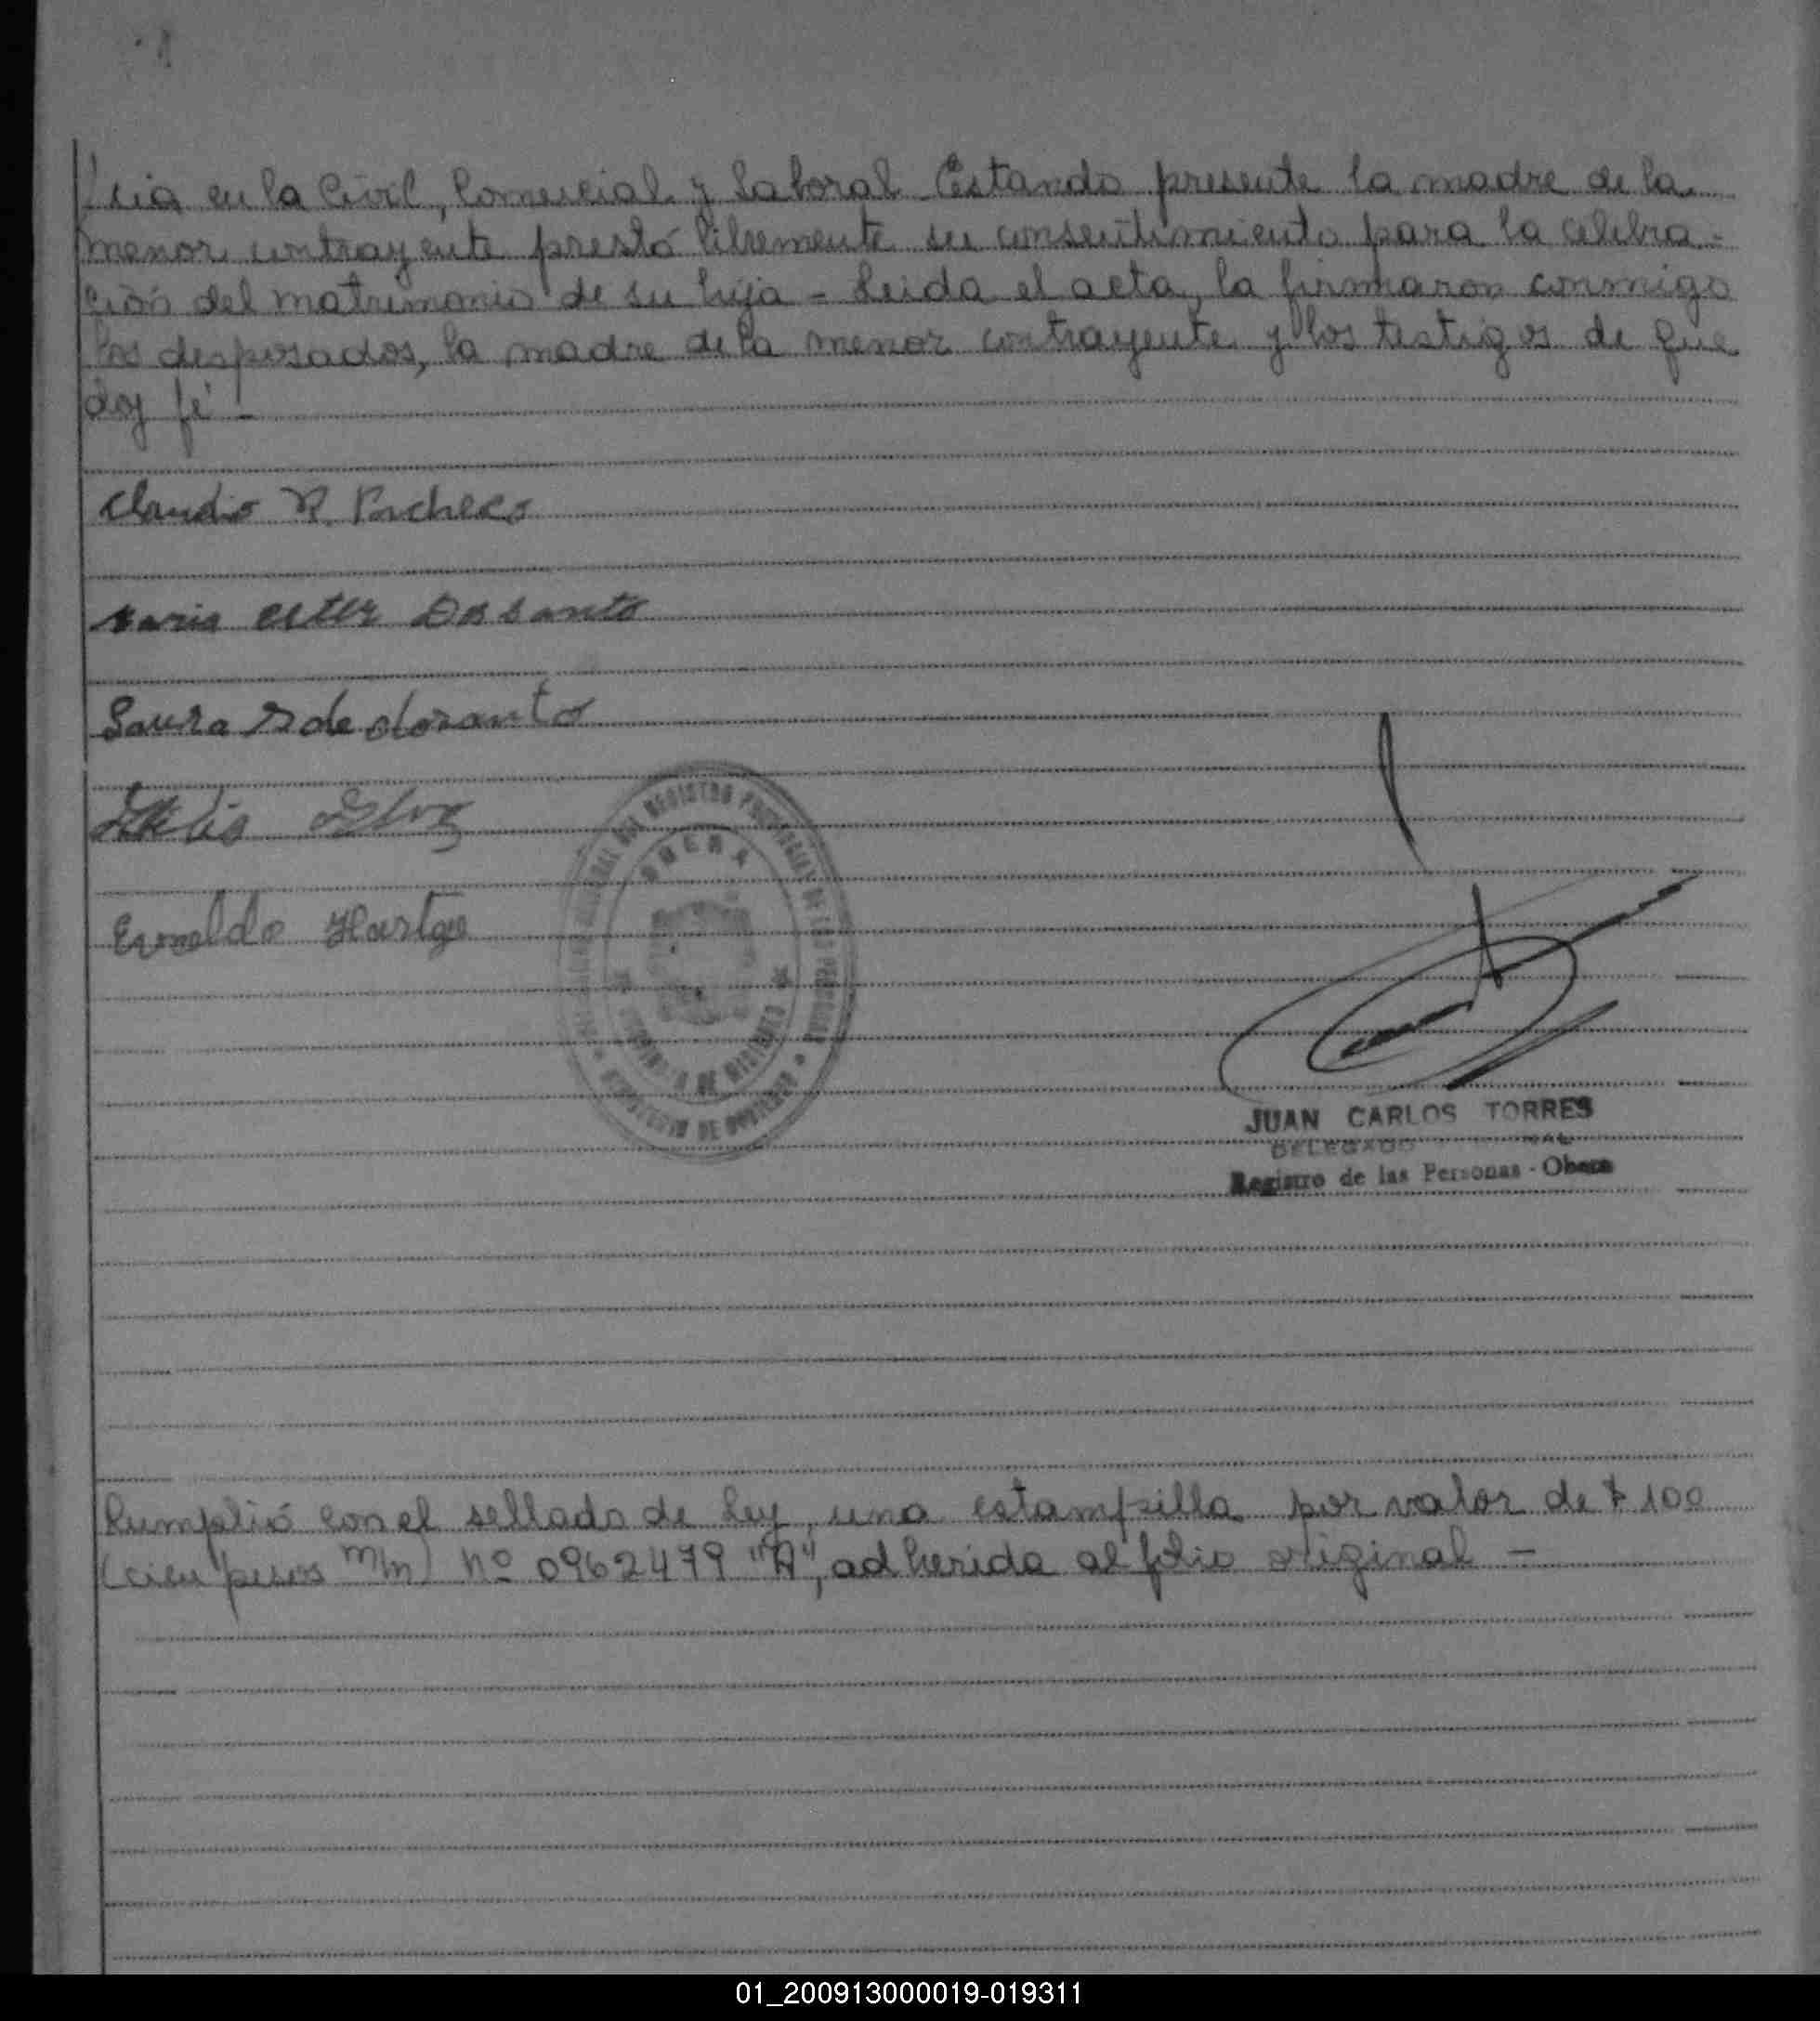 cia en la Civil, Comercial y Laboral. Estando presente la madre de la
menor contrayente prestó libremente su consentimiento para la celebra-
ción del matrimonio de su hija - Leida el acta, la firmaron conmigo
los desposados, la madre de la menor contrayente y los testigos de que
doy fé -
Claudio R. Pacheco
Maria ester Dosanto
Laura de dosanto
Evaldo Hartge
OBERA
REGISTRO PROVINCIAL DE LAS PERSONAS
PROVINCIA DE MISIONES
MINISTERIO DE GOBIERNO
JUAN CARLOS TORRES
DELEGADO
Registro de las Personas - Obera
Cumplió con el sellado de Ley, una estampilla por valor de $ 100
(cien pesos m/n) nº 0962479 "A", adherida al folio original -
01_200913000019-019311